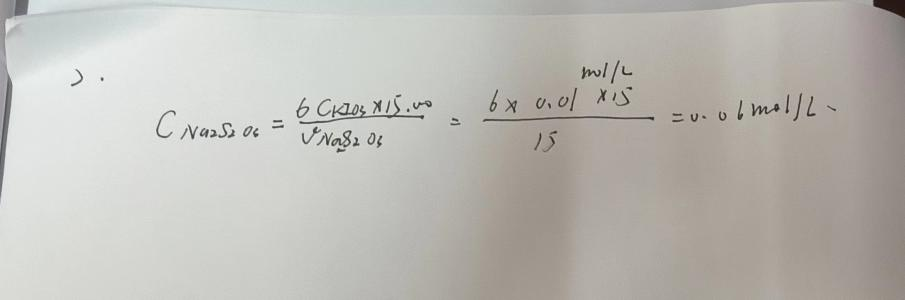 2.
C Na2S2O3 = 6 CKIO3 × 15.00 / VNa2S2O3 = 6 × 0.01 mol/L × 15 / 15 = 0.06 mol/L.